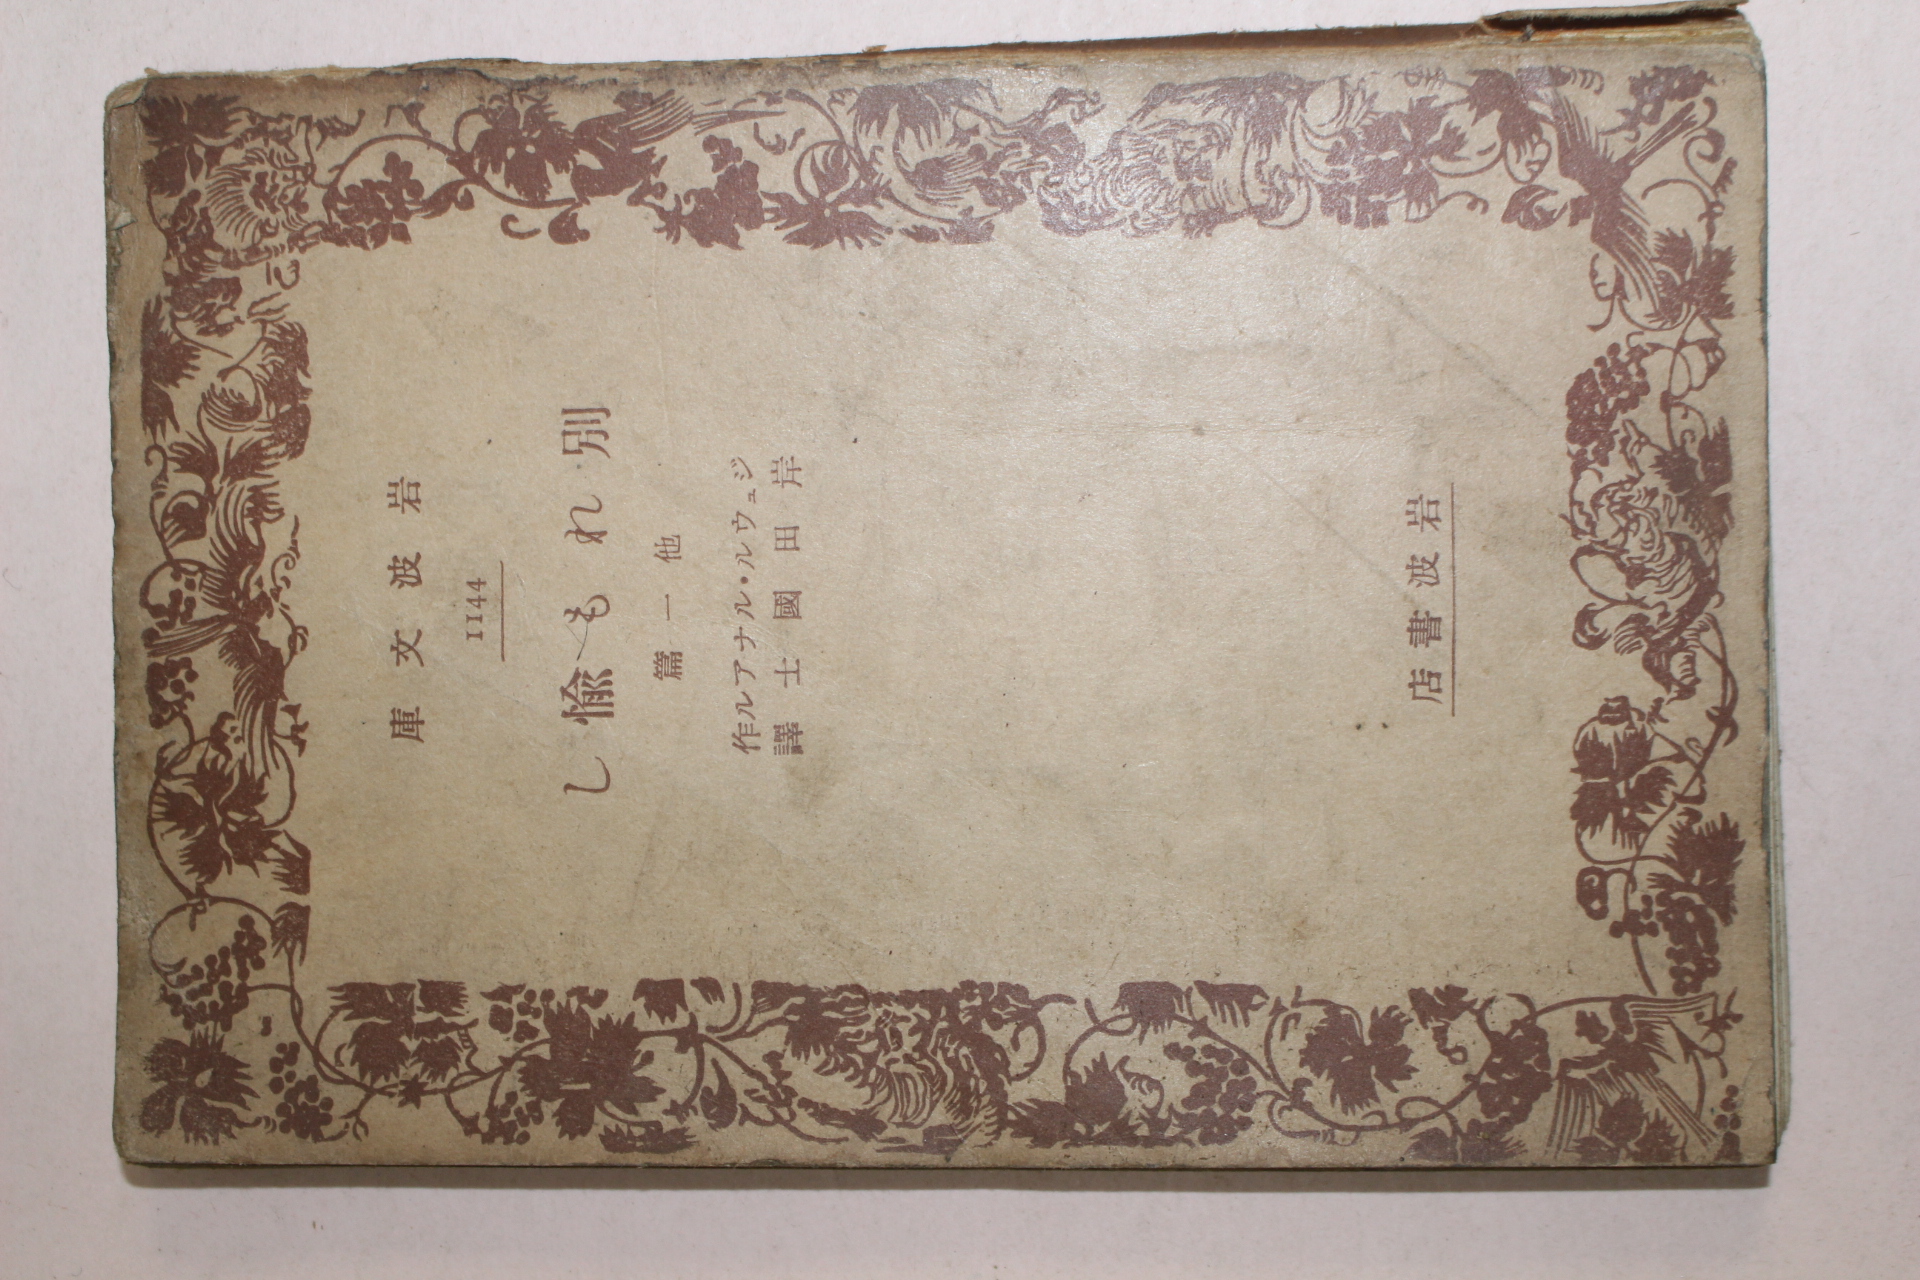 岩波文庫
1144
別れも愉し
他一篇
ジュウル・ルナアル作
岸田國士譯
岩波書店